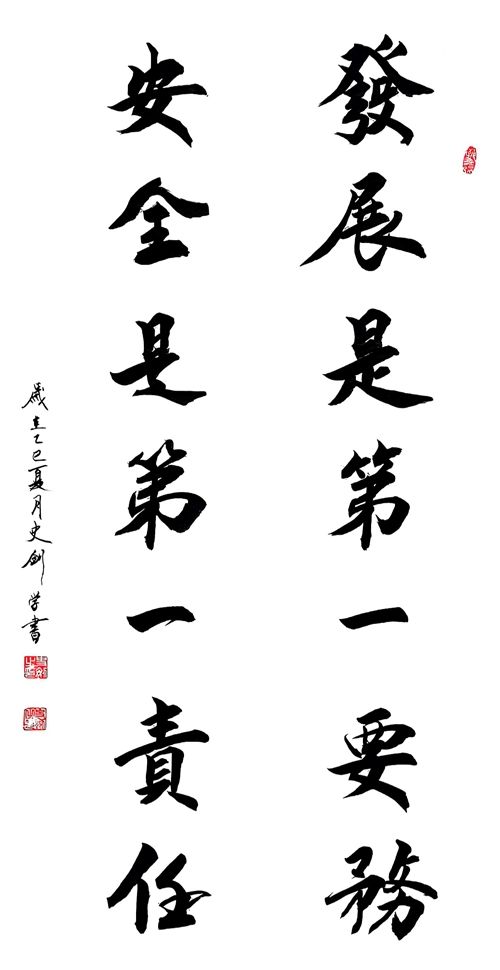 發展是第一要務
安全是第一責任
歲在乙巳夏月史劍学書